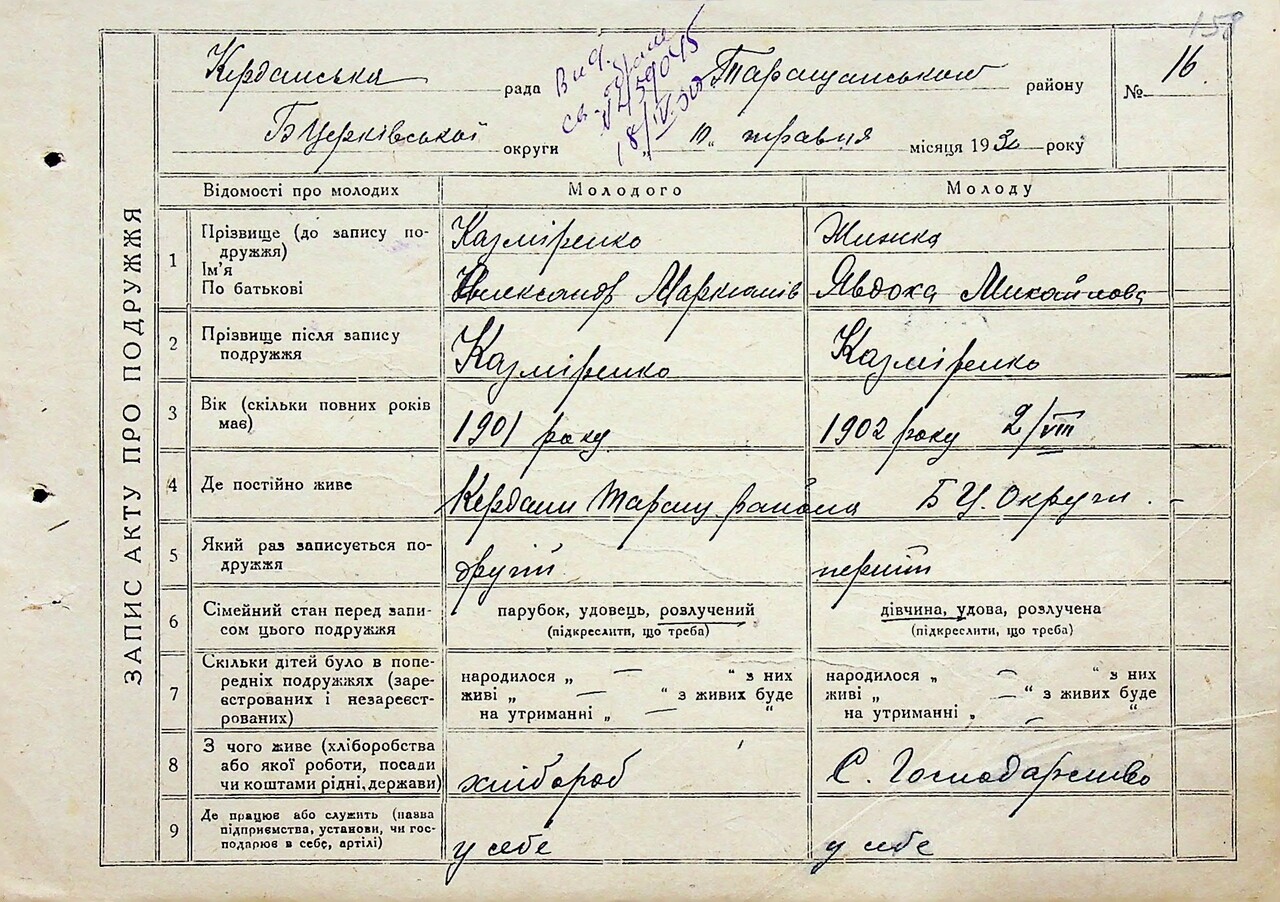 158
Керданська рада Таращанського району № 16
Вид.
св.
N 459045
18/IV 50
Б Церківської округи „ 10 " травня місяця 1930 року
ЗАПИС АКТУ ПРО ПОДРУЖЖЯ
Відомості про молодих Молодого Молоду
1 Прізвище (до запису по-
дружжя)
Ім'я
По батькові
Казміренко
Олександр Маркіянів
Жинка
Явдоха Михайлова
2 Прізвище після запису
подружжя
Казміренко Казміренко
3 Вік (скільки повних років
має)
1901 року 1902 року 2/VIII
4 Де постійно живе Кердани Таращ. района Б Ц. Округи.
5 Який раз записується по-
дружжя
другій перший
6 Сімейний стан перед запи-
сом цього подружжя
парубок, удовець, розлучений
(підкреслити, що треба)
дівчина, удова, розлучена
(підкреслити, що треба)
7 Скільки дітей було в попе-
редніх подружжях (заре-
єстрованих і незареєст-
рованих)
народилося „ — " з них
живі „ — " з живих буде
на утриманні „ — "
народилося „ — " з них
живі „ — " з живих буде
на утриманні „ — "
8 З чого живе (хліборобства
або якої роботи, посади
чи коштами рідні, держави)
хлібороб С. Господарство
9 Де працює або служить (назва
підприємства, установи, чи гос-
подарює в себе, артілі)
у себе у себе